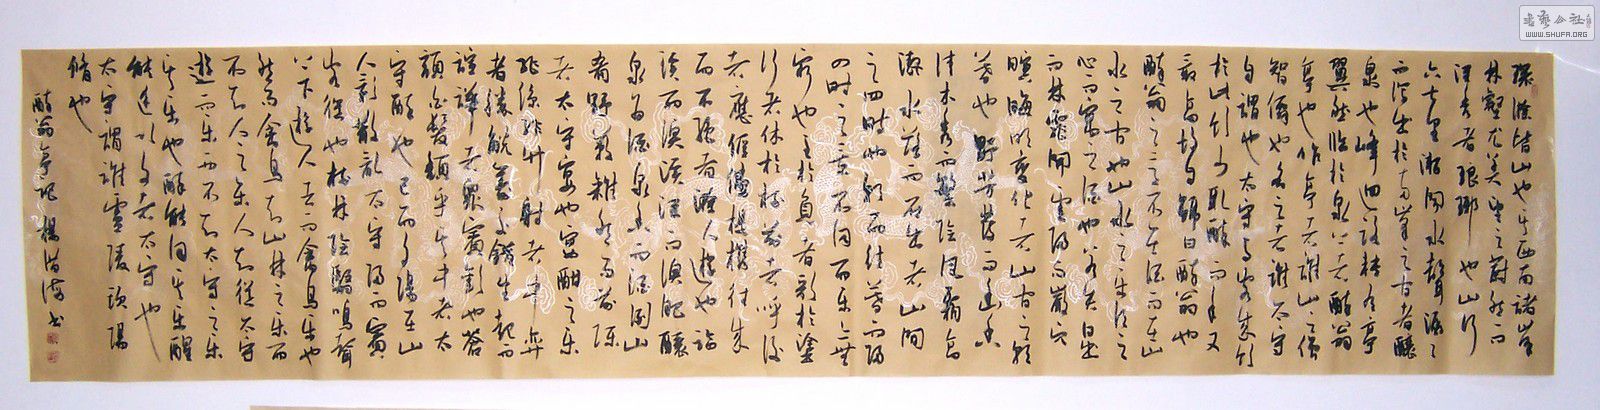 環滁皆山也其西南諸峯
林壑尤美望之蔚然而
深秀者琅琊也山行
六七里漸聞水聲潺潺
而瀉出於兩峯之間者釀
泉也峰迴路轉有亭
翼然臨於泉上者醉翁
亭也作亭者誰山之僧
智僊也名之者誰太守
自謂也太守與客來飲
於此飲少輒醉而年又
最高故自號曰醉翁也
醉翁之意不在酒而在山
水之間也山水之樂得之
心而寓之酒也若夫日出
而林霏開雲歸而巖穴
暝晦明變化者山間之朝
暮也野芳發而幽香
佳木秀而繁陰風霜高
潔水落而石出者山間
之四時也朝而往暮而歸
四時之景不同而樂亦無
窮也至於負者歌於塗
行者休於樹前者呼後
者應傴僂提攜往來
而不絕者滁人遊也臨
溪而漁溪深而漁肥釀
泉為酒泉香而酒洌山
肴野蔌雜然而前陳
者太守宴也宴酣之樂
非絲非竹射者中弈
者勝觥籌交錯坐起而
諠譁者眾賓歡也蒼
顏白髮頹乎其中者太
守醉也已而夕陽在山
人影散亂太守歸而賓
客從也樹林陰翳鳴聲
上下遊人去而禽鳥樂也
然而禽鳥知山林之樂而
不知人之樂人知從太守
遊而樂而不知太守之樂
其樂也醉能同其樂醒
能述以文者太守也
太守謂誰廬陵歐陽
脩也
醉翁亭記 楊 書
書艺公社
WWW.SHUFA.ORG